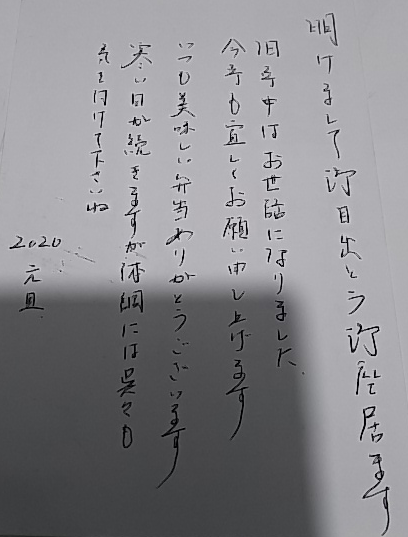 明けまして御目出とう御座居ます
旧年中はお世話になりました
今年も宜しくお願い申し上げます
いつも美味しい弁当ありがとうございます
寒い日が続きますが体調には呉々も
気を付けて下さいね
2020
元旦